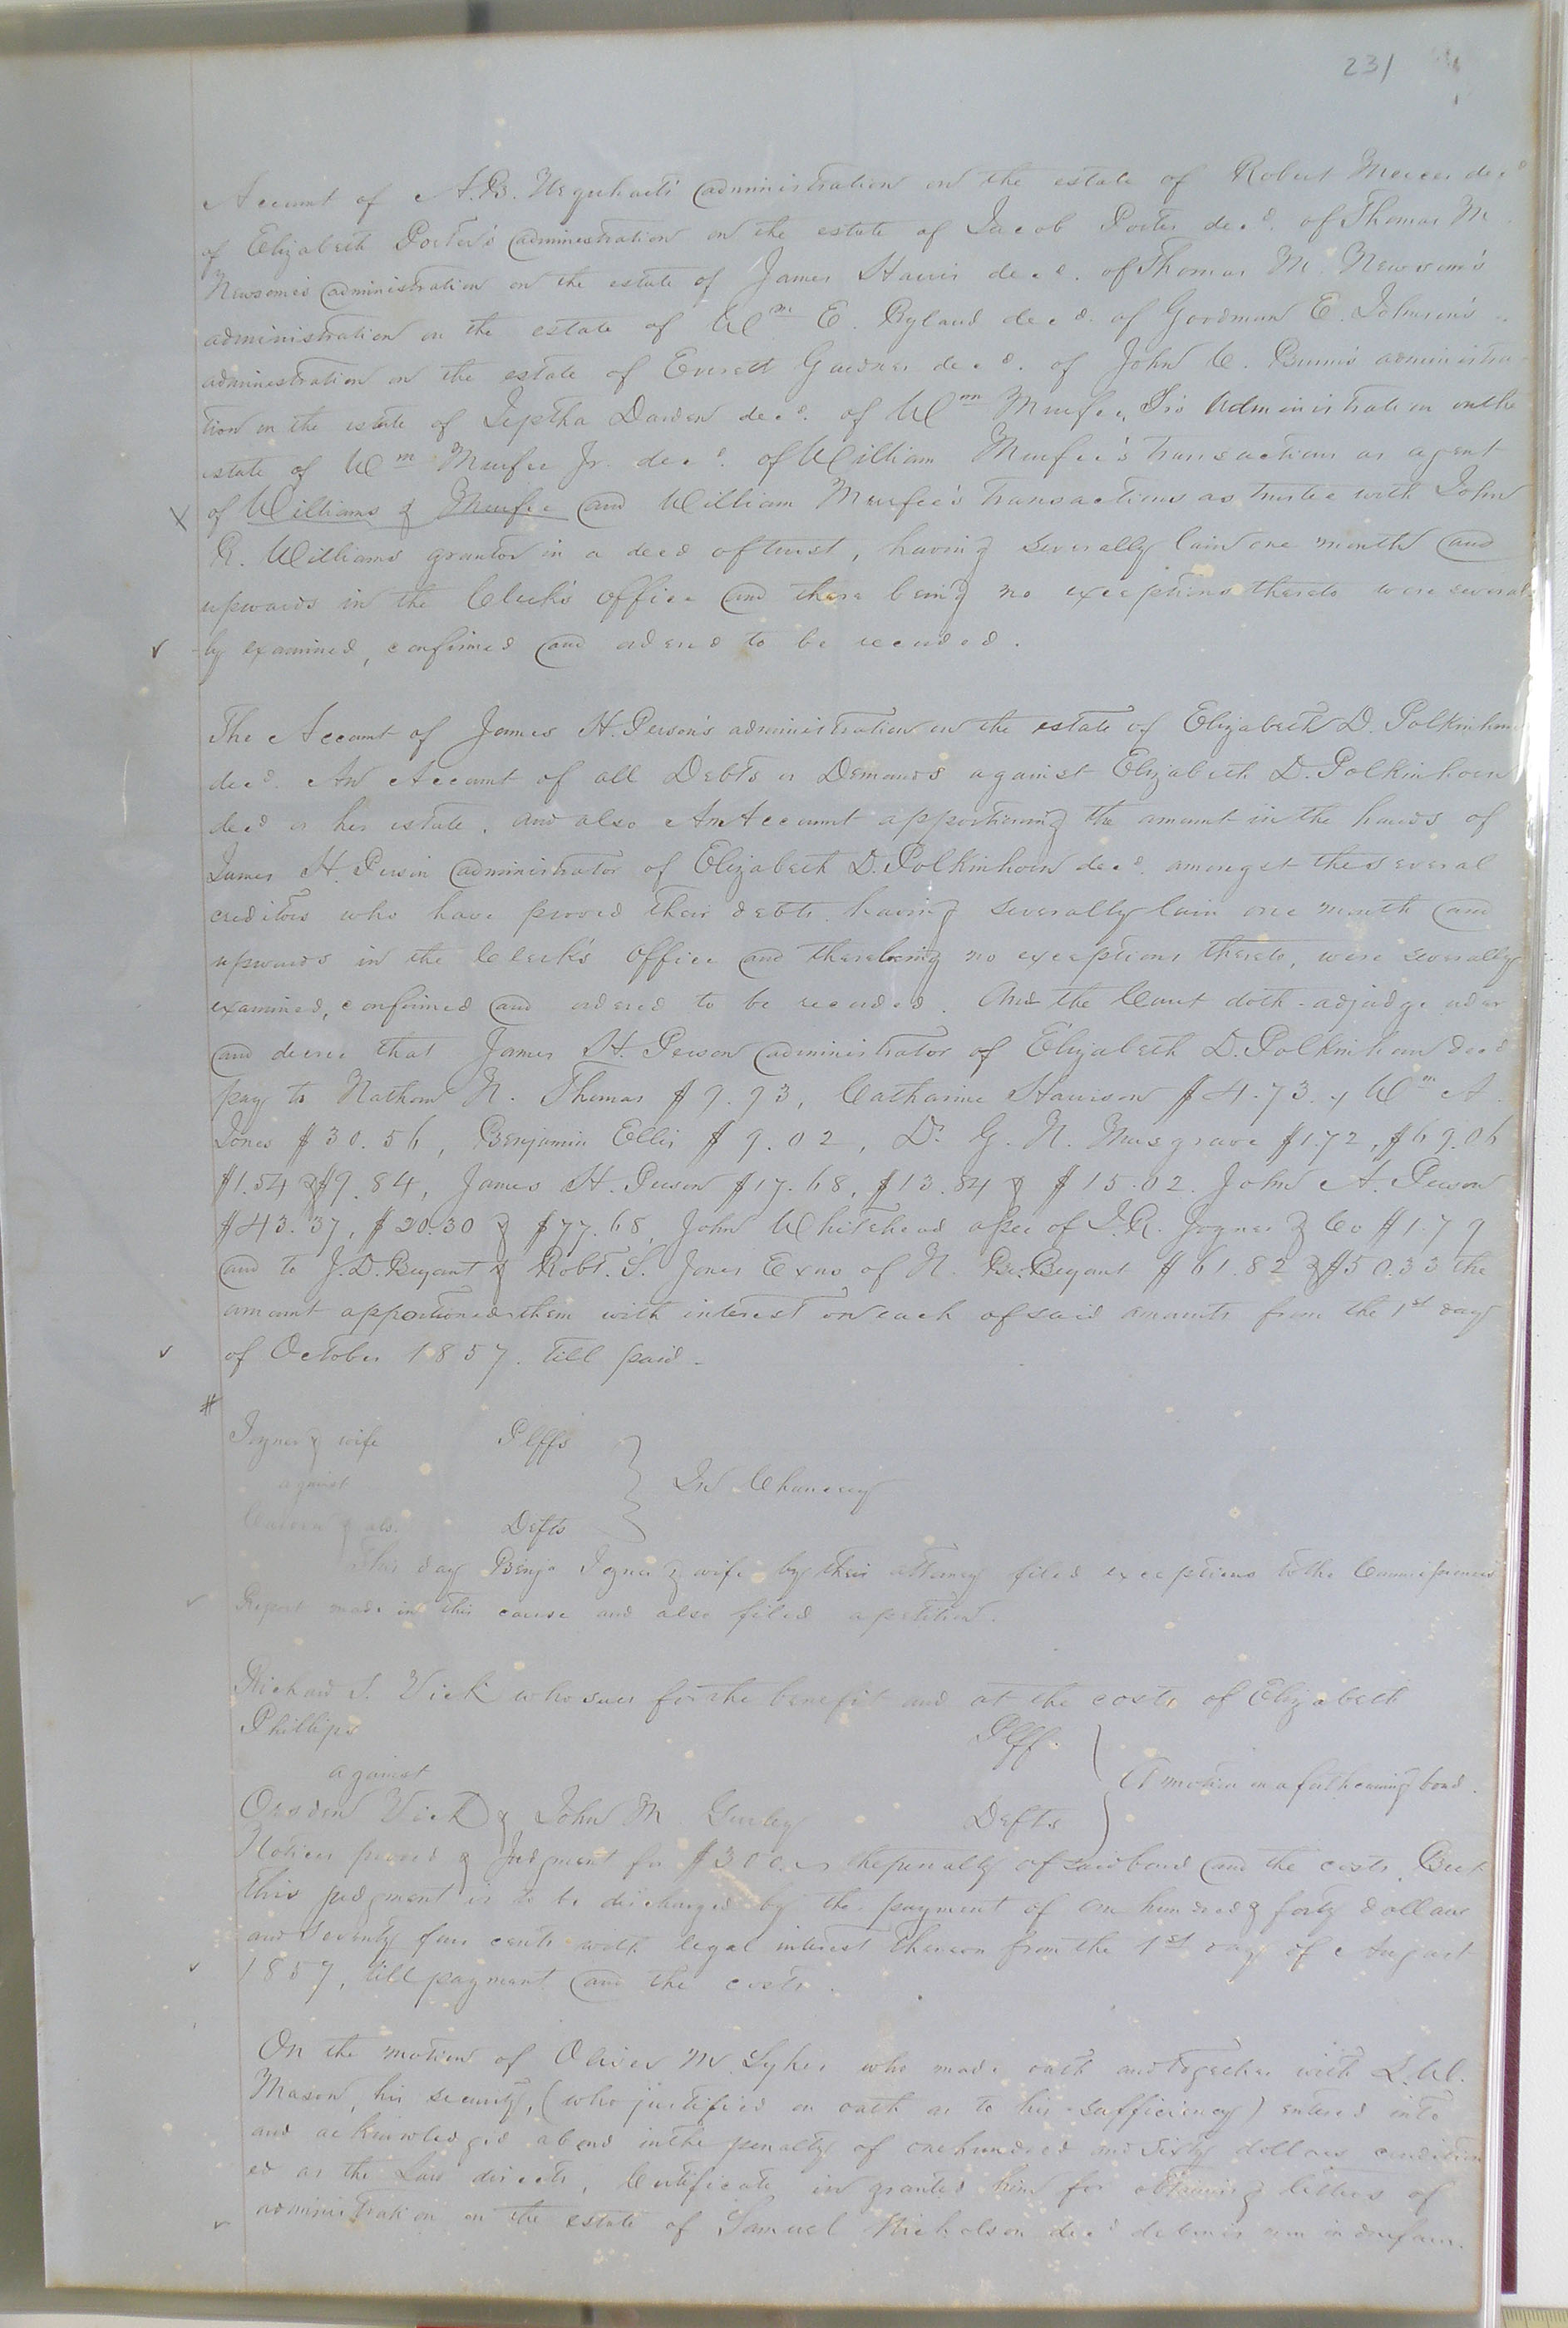 231
Account of A.B. Urquhart's administration on the estate of Robert Mercer decd
of Elizabeth Porter's administration on the estate of Jacob Porter decd. of Thomas M.
Newsome's administration on the estate of James Harris decd. of Thomas M. Newsom's
administration on the estate of Wm E. Byland decd. of Goodman E. Johnson's
administration on the estate of Everett Gardner decd. of John C. administra-
tion on the estate of Jeptha Darden decd. of Wm Murfee, Sr's Administration on the
estate of Wm Murfee Jr. decd. of William Murfee's transactions as agent
X of Williams & Murfee and William Murfee's Transactions as trustee with John
R. Williams grantor in a deed of trust, having severally lain one month and
upwards in the Clerk's office and there being no exceptions thereto were several-
ly examined, confirmed and ordered to be recorded.
The Account of James H. Person's administration on the estate of Elizabeth D. Polkinhorn
decd. An Account of all Debts or Demands against Elizabeth D. Polkinhorn
decd or her estate, and also An Account apportioning the amount in the hands of
James H. Person administrator of Elizabeth D. Polkinhorn decd. amongst the several
creditors who have proved their debts, having severally lain one month and
upwards in the Clerk's Office and there being no exceptions thereto, were severally
examined, confirmed and ordered to be recorded. And the Court doth adjudge order
and decree that James H. Person administrator of Elizabeth D. Polkinhorn decd
pay to Nathan N. Thomas $9.93, Catharine Harrison $4.73, Wm A.
Jones $30.56, Benjamin Ellis $9.02, Dr. G. N. Musgrave $1.72, $69.06
$1.54 & $9.84, James H. Person $17.68, $13.84 & $15.02. John A. Person
$43.37, $20.30 & $77.68, John Whitehead assee of J.R. Joyner & Co $1.79
and to J.D. Bryant & Robt. S. Jones Exors of N. Br. Bryant $61.82 & $50.33 the
amount apportioned them with interest on each of said amounts from the 1st day
of October 1857. till paid.
#
Joyner & wife Plffs
against In Chancery
& als. Defts
This day Benja Joyner & wife by their attorney filed exceptions to the Commissioners
Report made in this cause and also filed a petition.
Richard S. Vick who sues for the benefit and at the costs of Elizabeth
Phillips Plff.
against A motion on a forthcoming bond.
Vick & John M. Gurley Defts
Notices proved & Judgment for $ the penalty of said bond and the costs. But
this judgment is to be discharged by the payment of one hundred & forty dollars
and seventy four cents with legal interest thereon from the 1st day of August
1857, till payment and the costs.
On the motion of Oliver M Sykes who made oath and together with L.W.
Mason, his security, (who justified on oath as to his sufficiency) entered into
and acknowledged a bond in the penalty of one hundred and sixty dollars condition-
ed as the Law directs, Certificate is granted him for obtaining letters of
administration on the estate of Samuel Nicholson decd debonis non in due form.